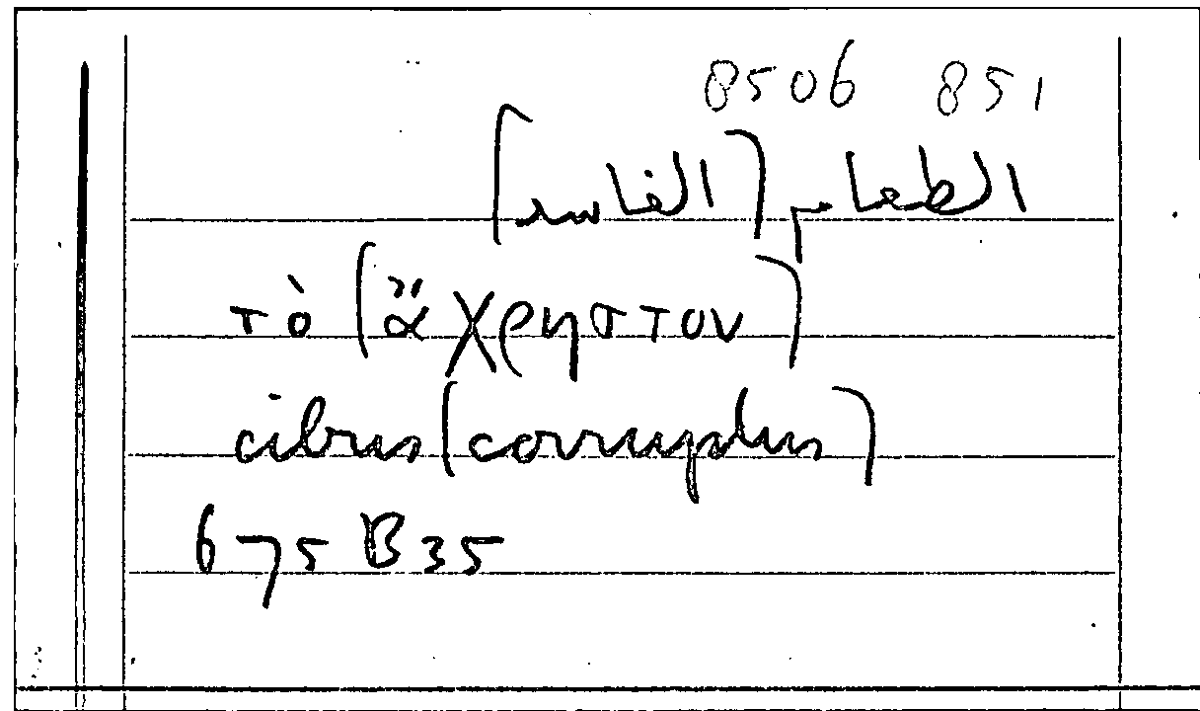 8506 851
الطعام (الفاسد)
τὸ (ἄχρηστον)
cibus (corruptus)
675 B35